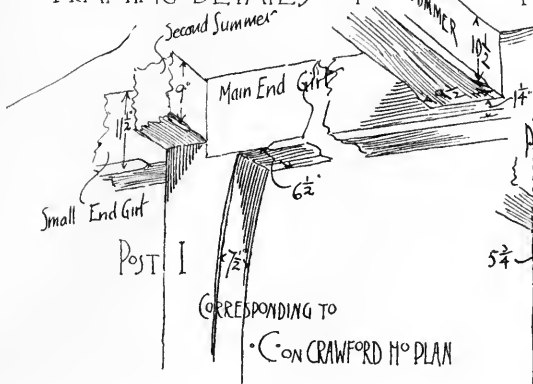 FRAMING DETAILS
Second Summer
SUMMER
10 1/2
9"
Main End Girt
11 1/2
9 1/2
1 1/4"
6 1/2"
Small End Girt
POST I
7 1/2"
5 3/4"
CORRESPONDING TO
·C· ON CRAWFORD Ho PLAN